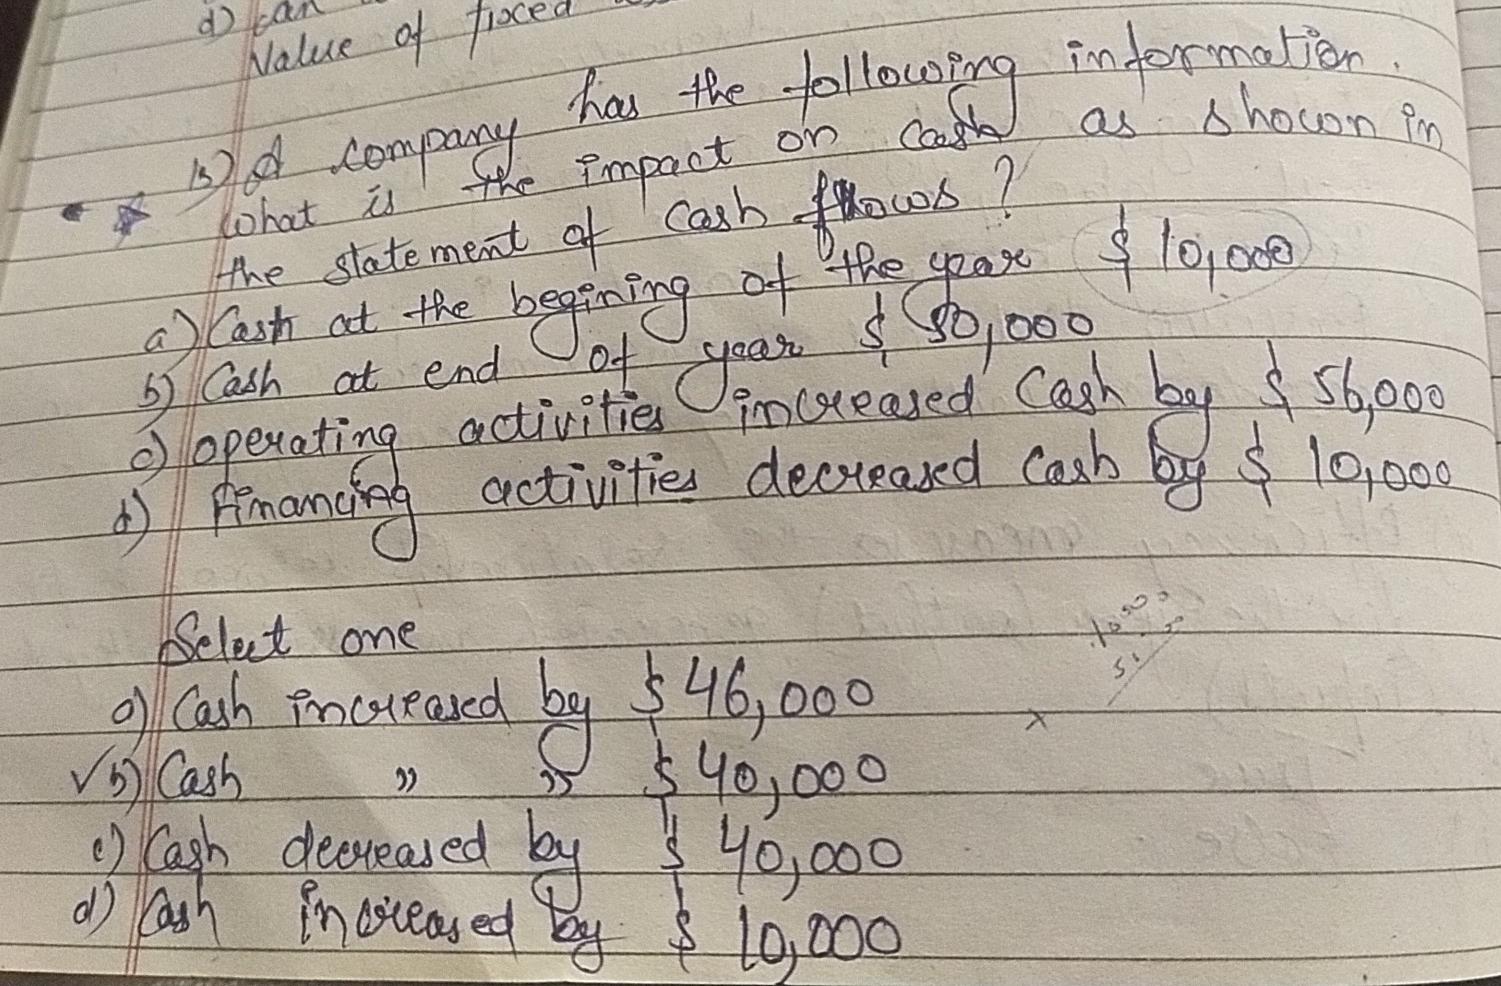 d) can
Value of fixed
13) A company has the following information.
What is the impact on cash as shown in
the statement of cash flows?
a) Cash at the begining of the year $ 10,000
b) Cash at end of year $ 50,000
c) operating activities increased Cash by $ 56,000
d) Financing activities decreased Cash by $ 10,000
Select one
a) Cash increased by $ 46,000
✓b) Cash " " $ 40,000
c) Cash decreased by $ 40,000
d) Cash increased by $ 10,000